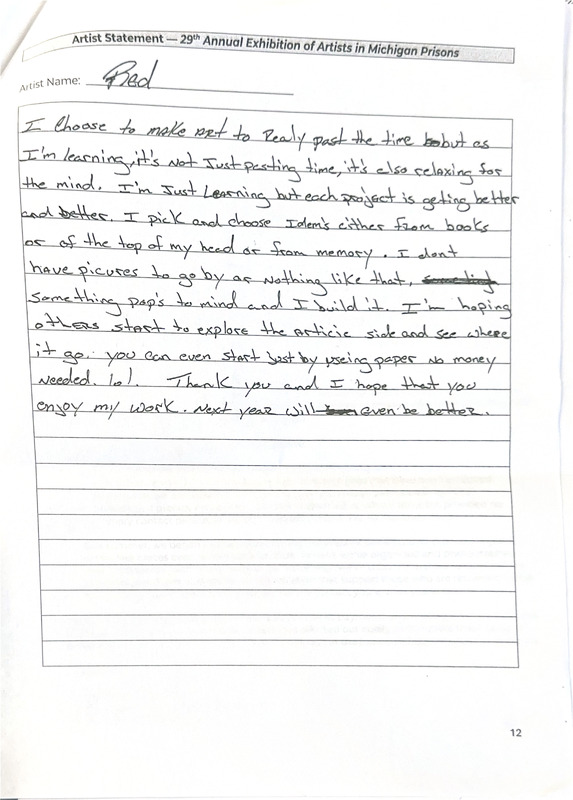 Artist Statement — 29th Annual Exhibition of Artists in Michigan Prisons
Artist Name: Red
I Choose to make ART to Realy past the time but as
I'm learning, it's Not Just pasting time, it's also relaxing for
the mind. I'm Just Learning but each project is geting better
and better. I pick and choose Idem's either from books
or of the top of my head or from memory. I dont
have picures to go by or Nothing like that,
Something pop's to mind and I build it. I'm hoping
others start to explore the Articic side and see where
it go. you can even start Just by useing paper No money
Needed. lol. Thank you and I hope that you
enjoy my work. Next year will even be better.
12